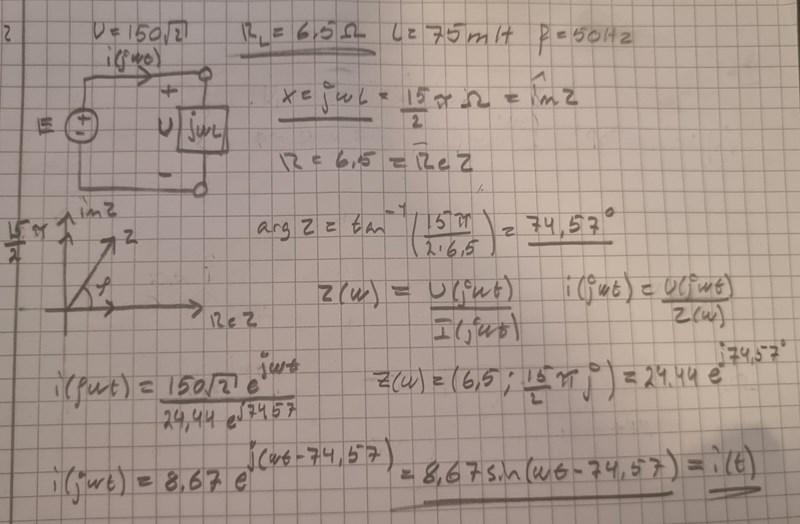 2 U=150√2 R_L = 6.5Ω L=75mH f=50Hz
i(jωt)
+
E + - U jωL
-
X = jωL = 15/2 π Ω = Im Z
R = 6.5 = Re Z
Im Z
15/2 π
Z
φ
Re Z
arg Z = tan⁻¹(15π/2·6,5) = 74,57°
Z(ω) = U(jωt)/I(jωt) i(jωt) = U(jωt)/Z(ω)
i(jωt) = 150√2 e^jωt/24,44 e^j74,57 Z(ω) = (6,5 ; 15/2 π j) = 24.44 e^j74,57°
i(jωt) = 8,67 e^j(ωt-74,57) = 8,67 sin(ωt-74,57) = i(t)